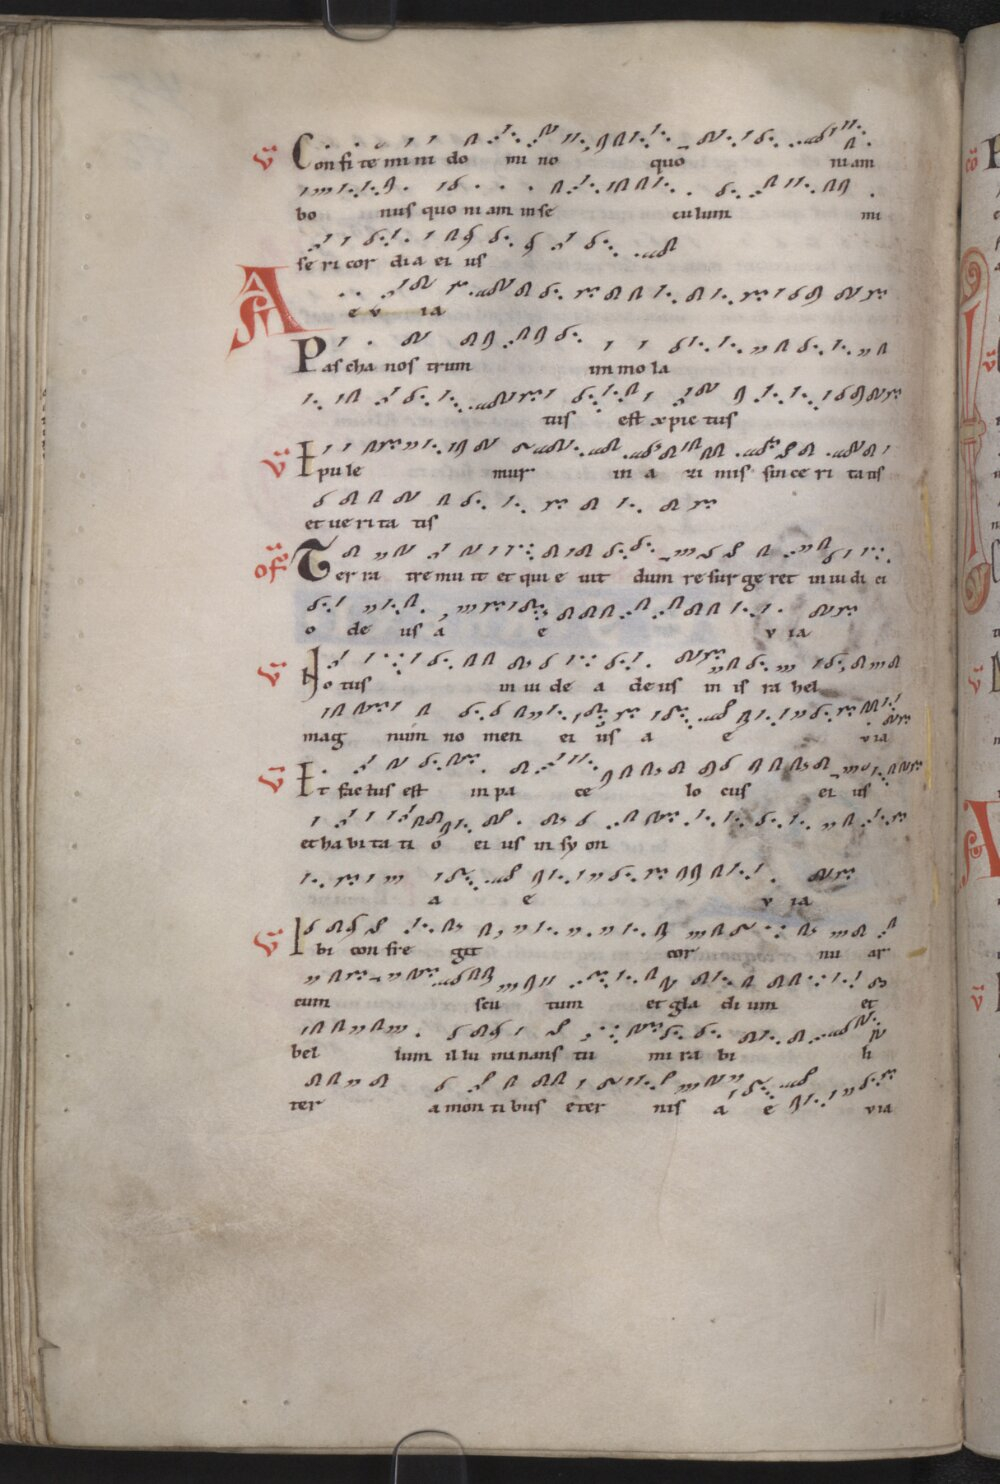 v̄ Con fi te mi ni do mi no quo ni am
bo nus quo ni am in se cu lum mi
se ri cor di a ei us
A e v ia
Pas cha nos trum im mo la
tus est xpic tus
v̄ E pu le mur in a zi mis sin ce ri ta tis
et ue ri ta tis
of Ter ra tre mu it et qui e uit dum re sur ge ret in iu di ci
o de us a e v ia
v̄ No tus in iu de a de us in is ra hel
mag num no men ei us a e v ia
v̄ Et fac tus est in pa ce lo cus ei us
et ha bi ta ti o ei us in sy on
a e v ia
v̄ I bi con fre git cor nu ar
cum scu tum et gla di um et
bel lum il lu mi nans tu mi ra bi li
ter a mon ti bus eter nis a e v ia